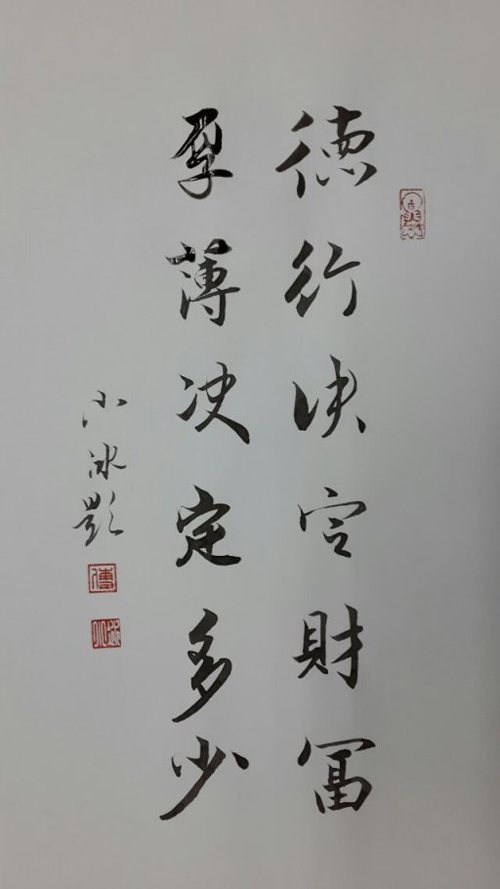 德行决定財冨
厚薄决定多少
小冰
傅